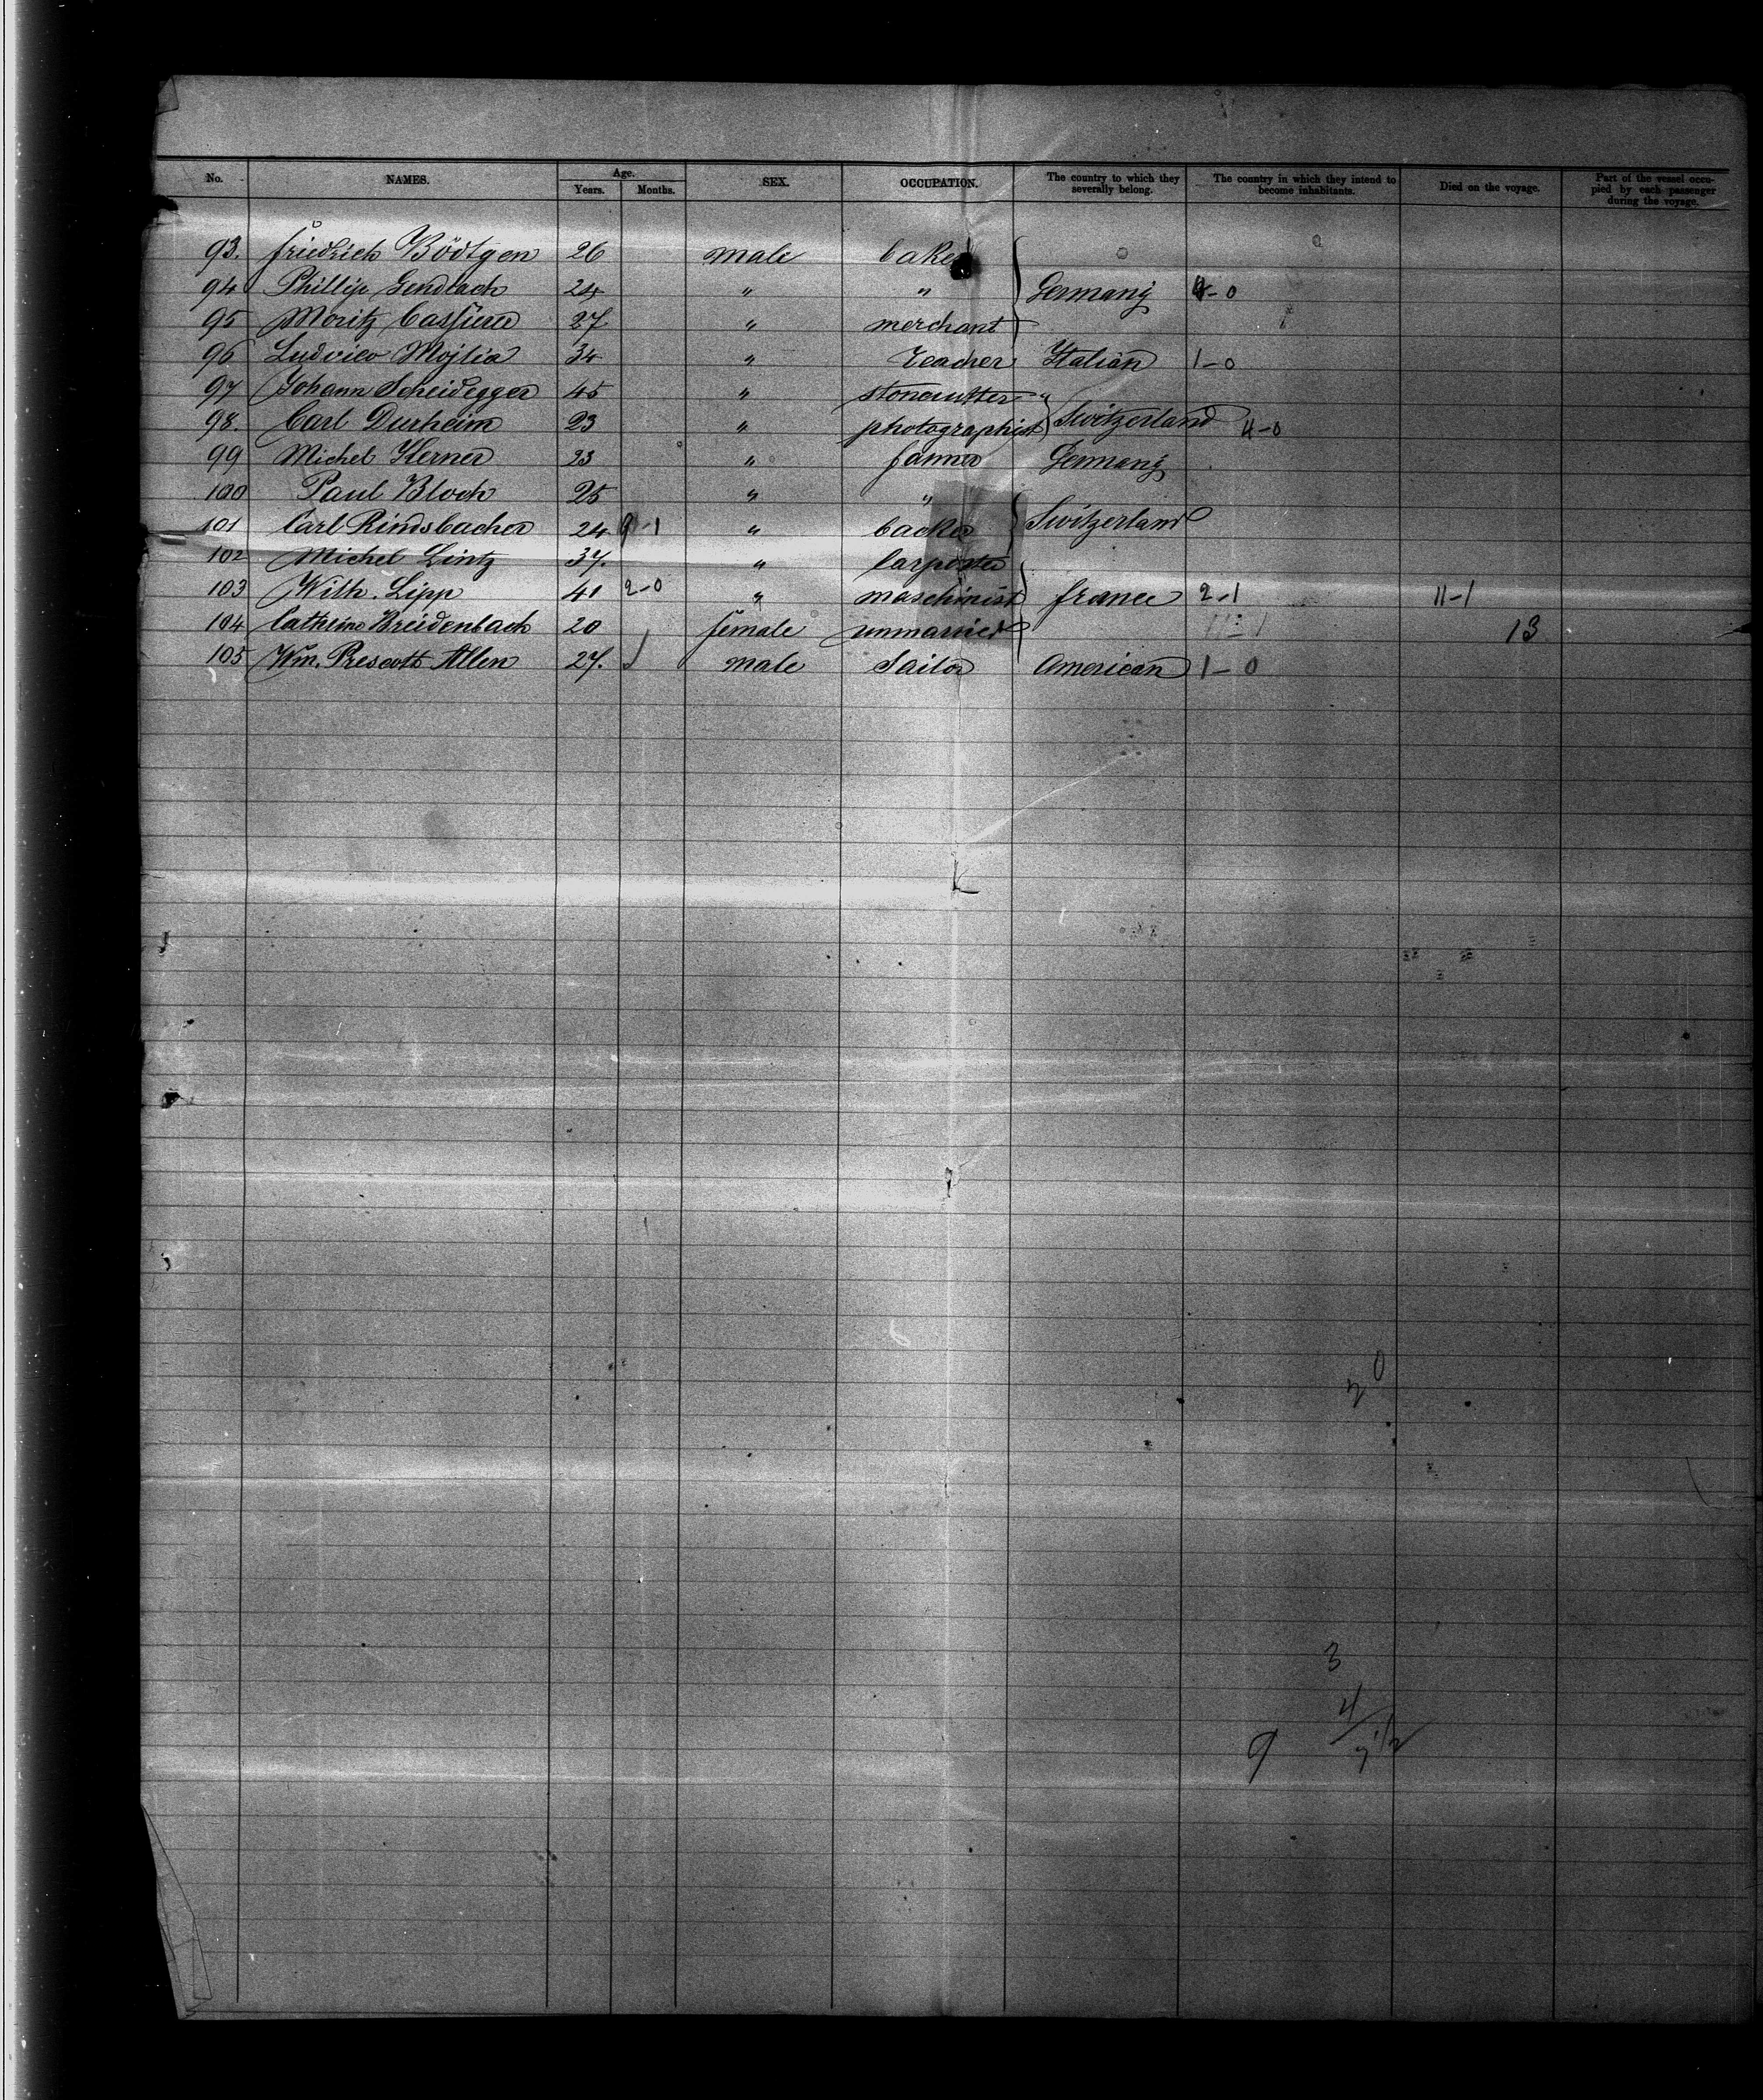 No. NAMES. Age. Years. Months. SEX. OCCUPATION. The country to which they severally belong. The country in which they intend to become inhabitants. Died on the voyage. Part of the vessel occupied by each passenger during the voyage.
93. Friedrich Bödtgen 26 male baker
94 Phillip Gendlach 24 " " Germany 4-0
95 Moritz Cassierer 27 " merchant
96 Ludvico Mojlia 34 " teacher Italian 1-0
97 Johann Scheidegger 45 " stonecutter "
98. Carl Durheim 23 " photographist Switzerland 4-0
99 Michel Kerner 23 " farmer Germany
100 Paul Bloch 25 " "
101 Carl Rindsbacher 24 9-1 " backer Switzerland
102 Michel Lintz 37. " Carpenter
103 Wilh. Lipp 41 2-0 " maschinist France 2-1 11-1
104 Cathrine Breidenbach 20 female unmarried 11-1 13
105 Wm. Prescott Allen 27. male Sailor American 1-0
3
4
9